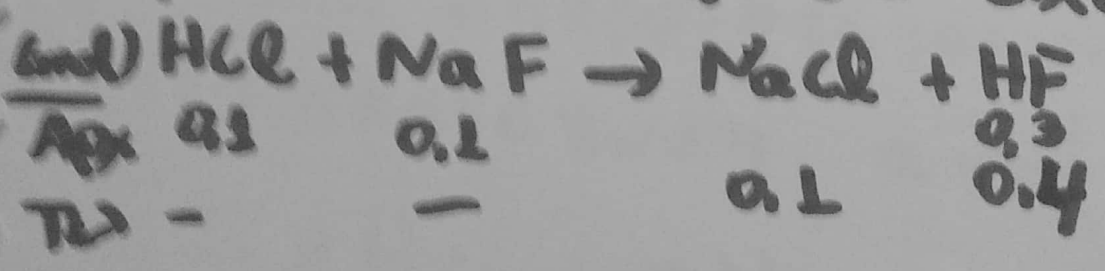 (mol) HCl + NaF → NaCl + HF
Αρχ 0,1 0,1 0,3
Τελ - - 0,1 0,4